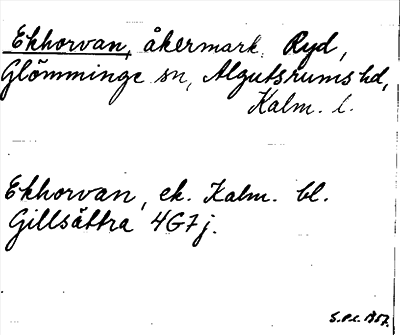 Ekhorvan, åkermark, Ryd,
Glömminge sn, Algutsrums hd,
Kalm. l.
Ekhorvan, ek. Kalm. bl.
Gillsättra 4G7j.